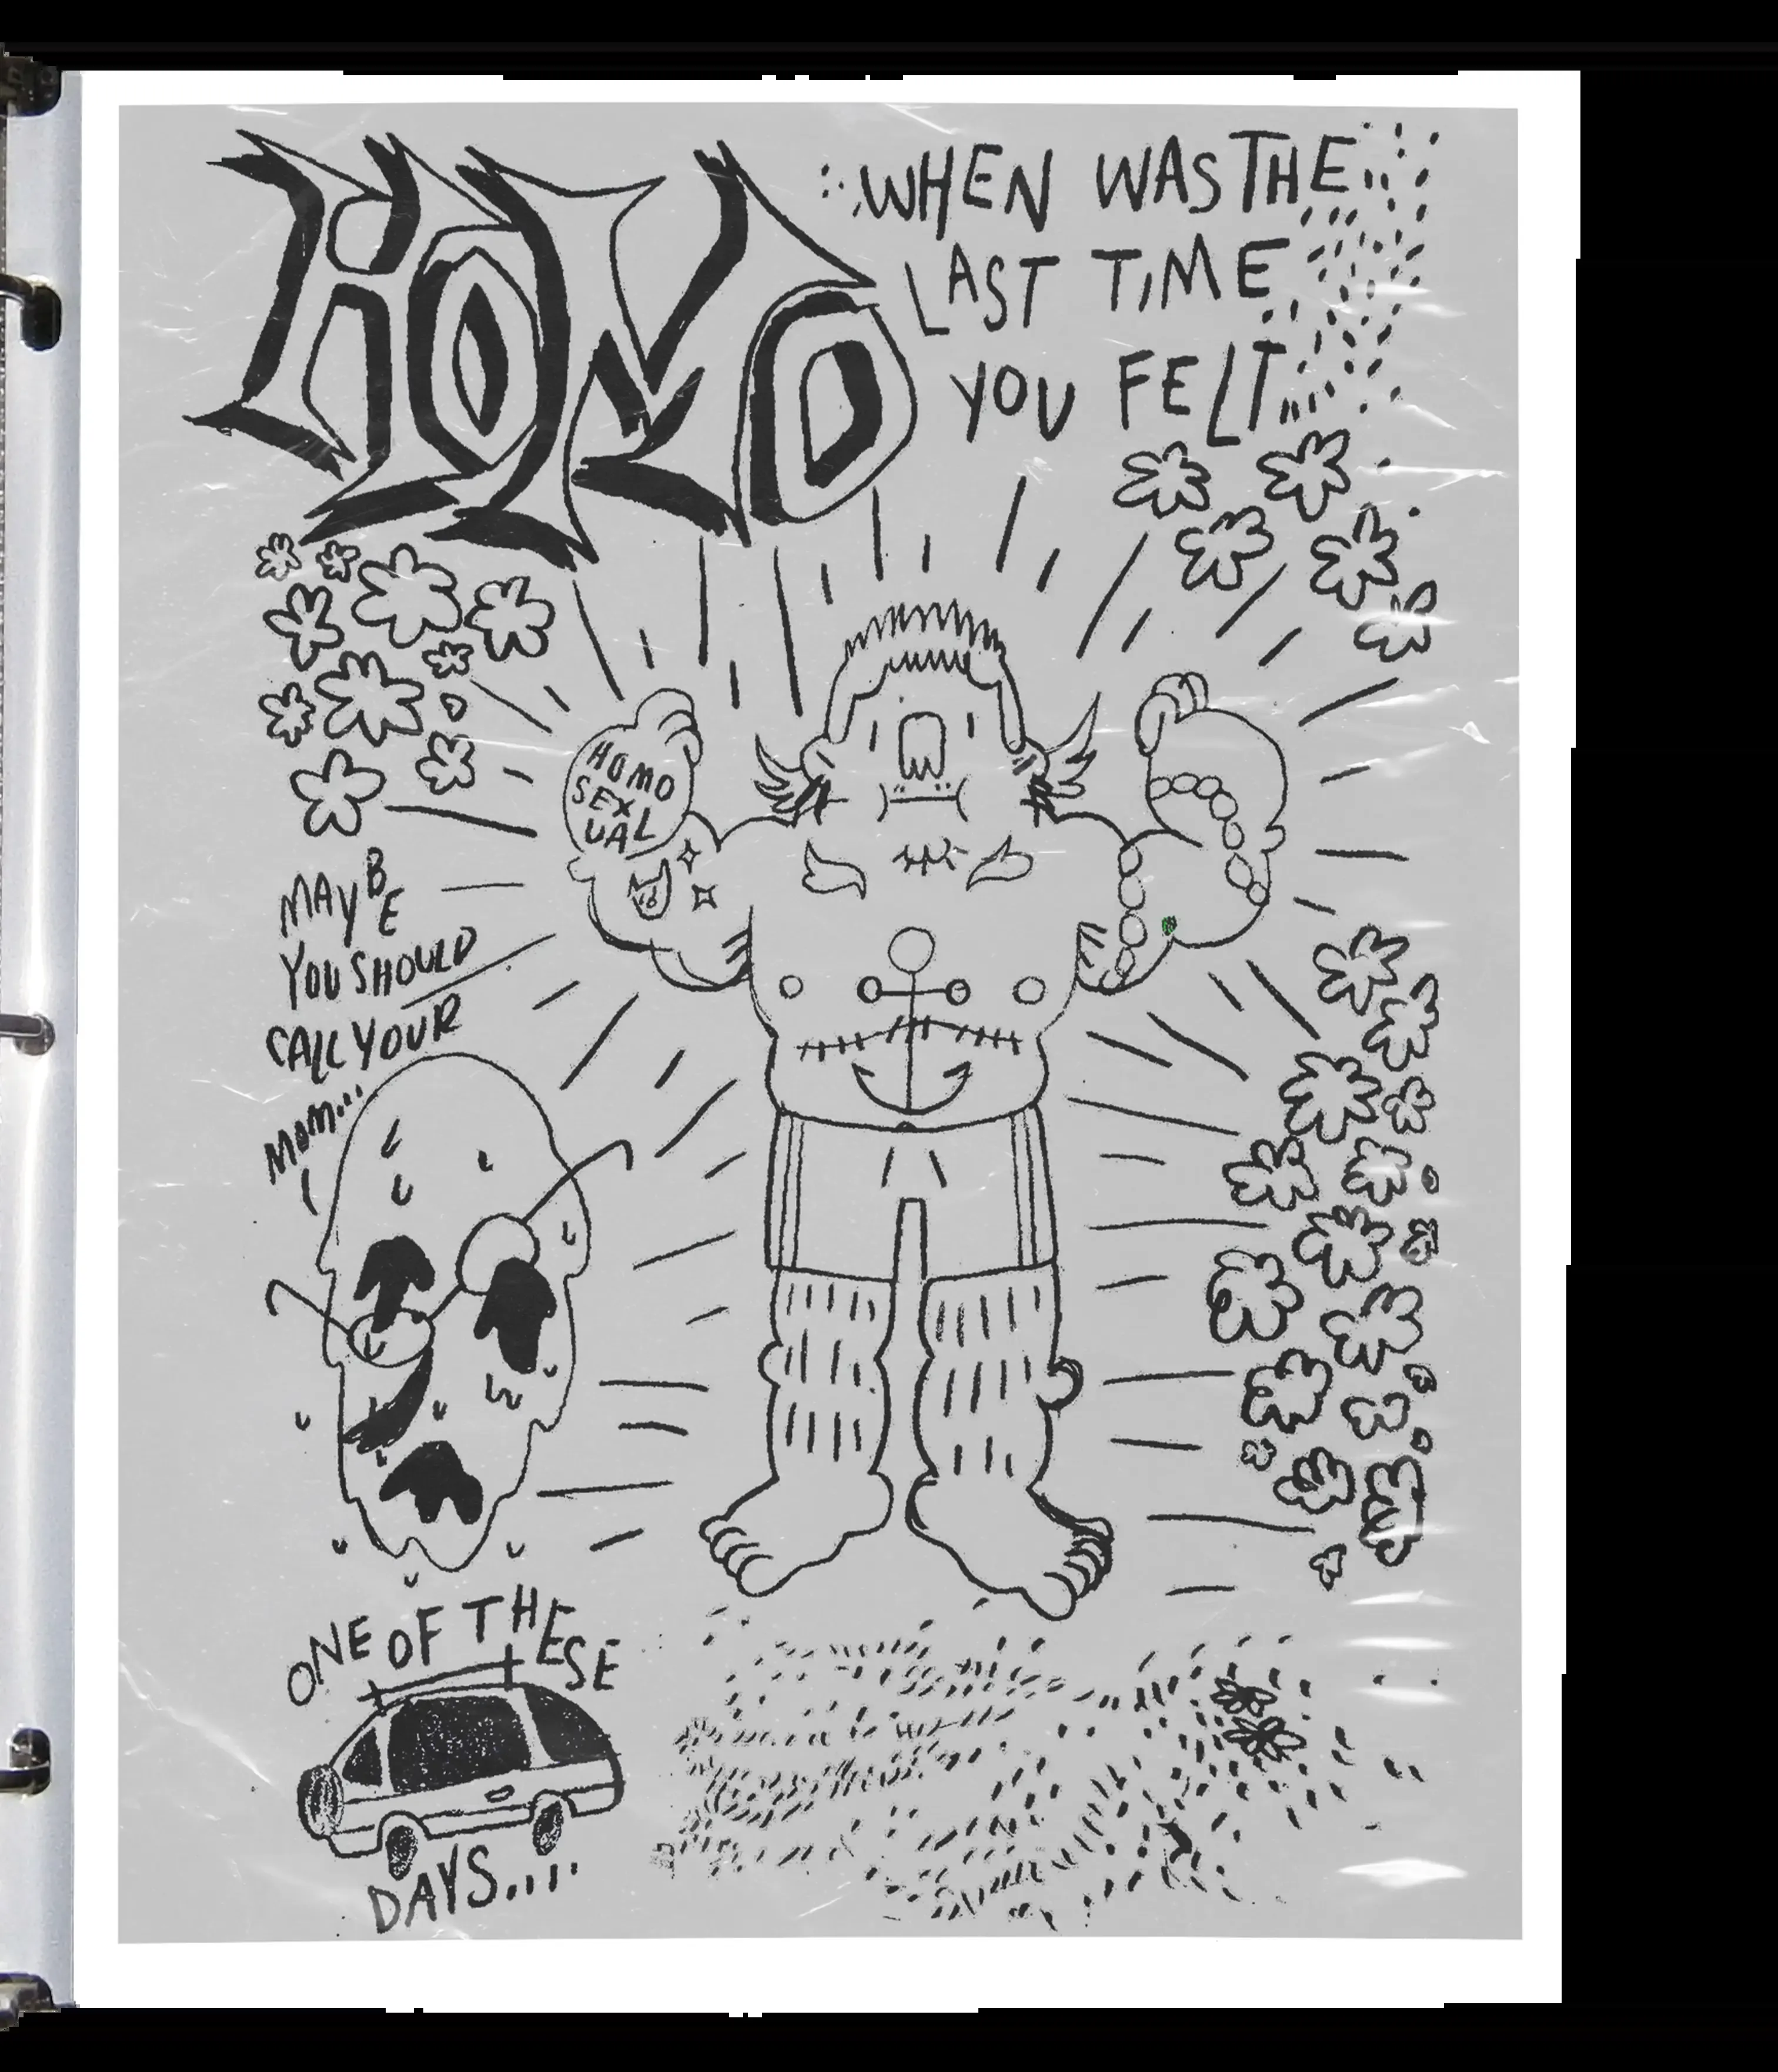 HOMO
WHEN WAS THE
LAST TIME
YOU FELT
HOMO
SEX
UAL
MAYBE
YOU SHOULD
CALL YOUR
MOM...
ONE OF THESE
DAYS....